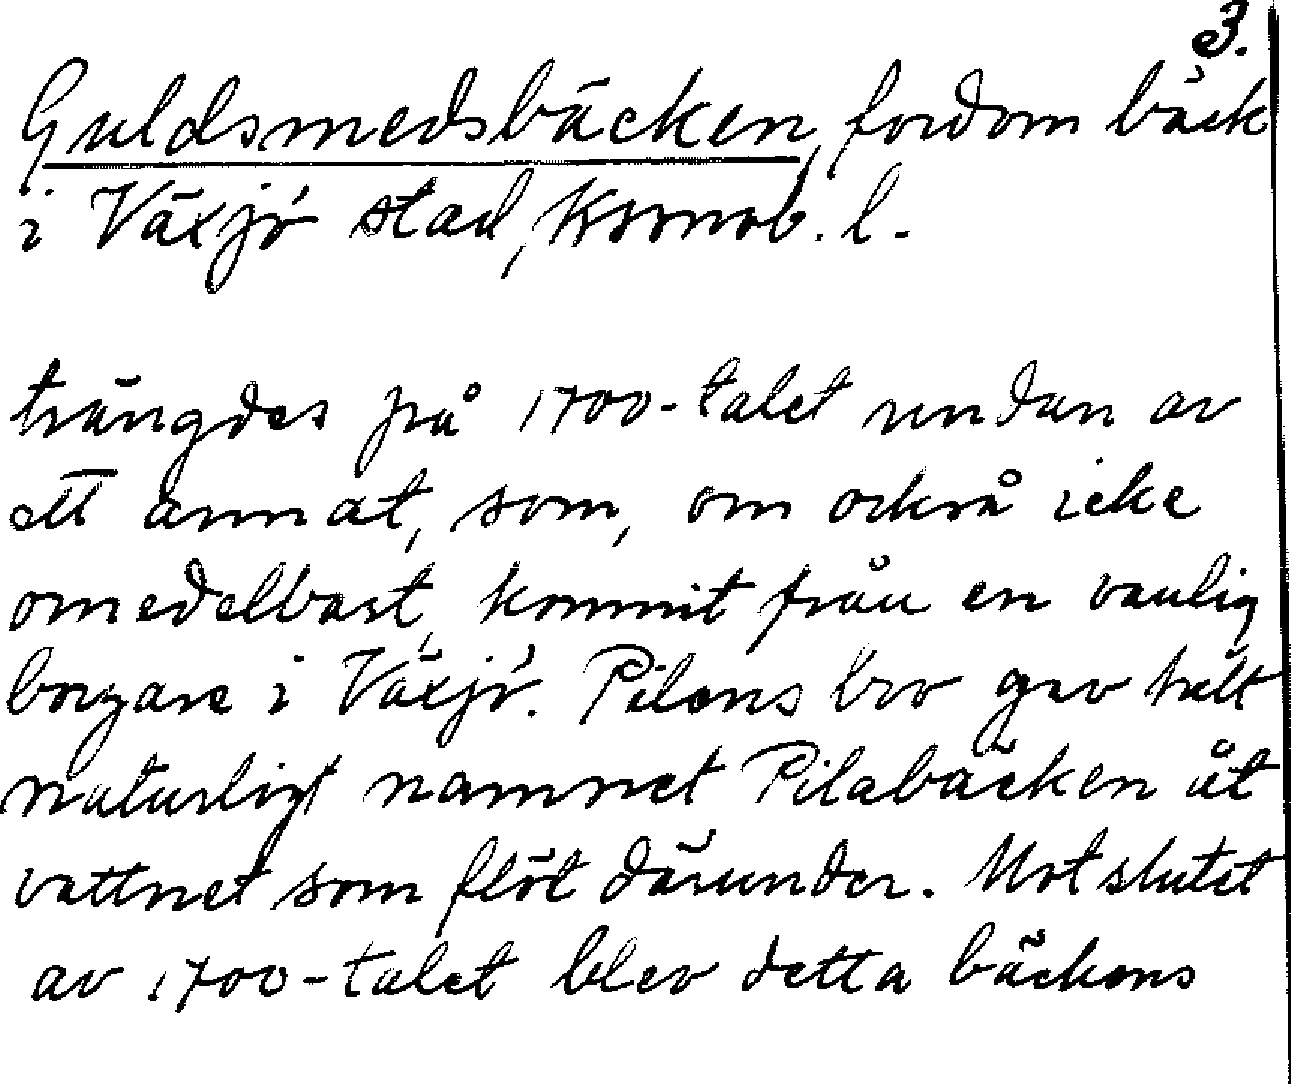 3.
Guldsmedsbäcken, fordom bäck
i Växjö stad, Kronob. l.
trängdes på 1700-talet undan av
ett annat, som, om också icke
omedelbart, kommit från en vanlig
borgare i Växjö. Pilens bro gav helt
naturligt namnet Pilabäcken åt
vattnet som flöt därunder. Mot slutet
av 1700-talet blev detta bäckens